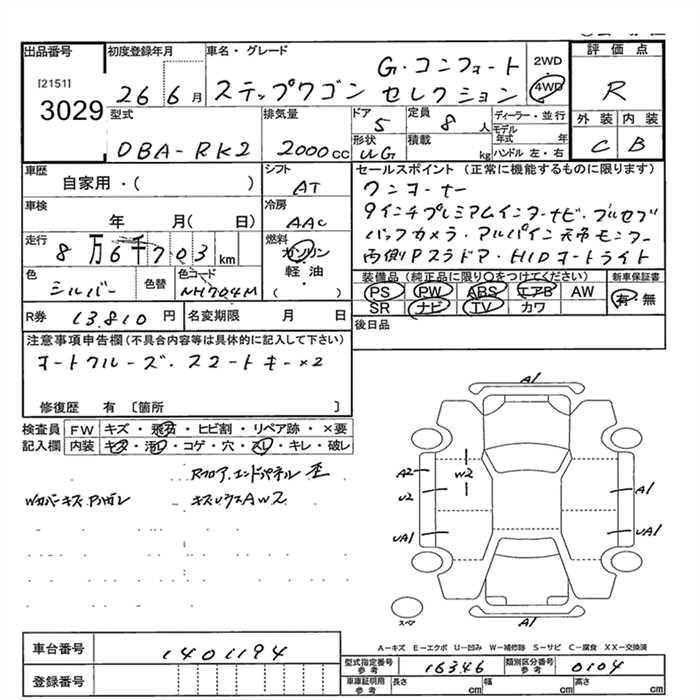 出品番号
[2151]
3029
初度登録年月
26 6月
車名・グレード
G・コンフォート
ステップワゴン セレクション
2WD
4WD
評価点
R
外装 内装
C B
型式
DBA-RK2
排気量
2000cc
ドア
5
定員
8人
形状
UG
積載
kg
ディーラー・並行
モデル年式 年
ハンドル 左・右
車歴
自家用・( )
シフト
AT
車検
年 月( 日)
冷房
AAC
走行
8万6千703km
燃料
ガソリン
軽油・
( )
色
シルバー
色替
色コード
NH704M
セールスポイント(正常に機能するものに限ります)
ワンオーナー
9インチプレミアムインターナビ・フルセグ
バックカメラ・アルパイン天吊モニター
両側Pスラドア・HIDオートライト
装備品(純正品に限り○をつけてください)
PS PW ABS エアB AW
SR ナビ TV カワ
新車保証書
有・無
R券 13.810円
名変期限 月 日
後日品
注意事項申告欄(不具合内容等は具体的に記入して下さい)
オートクルーズ・スマートキー×2
修復歴 有〔箇所 〕
検査員記入欄
FW キズ・飛石・ヒビ割・リペア跡・×要
内装 キズ・汚れ・コゲ・穴・スレ・キレ・破レ
Rフロア、エンドパネル 歪
キズUクスAW2
A1
A2
U2
UA1
W2
A1
UA1
A1
スペア
A-キズ E-エクボ U-凹み W-補修跡 S-サビ C-腐食 XX-交換済
車台番号 1401194
登録番号
型式指定番号 参考 16346
類別区分番号 参考 0104
車庫証明用 参考 長さ cm 幅 cm 高さ cm